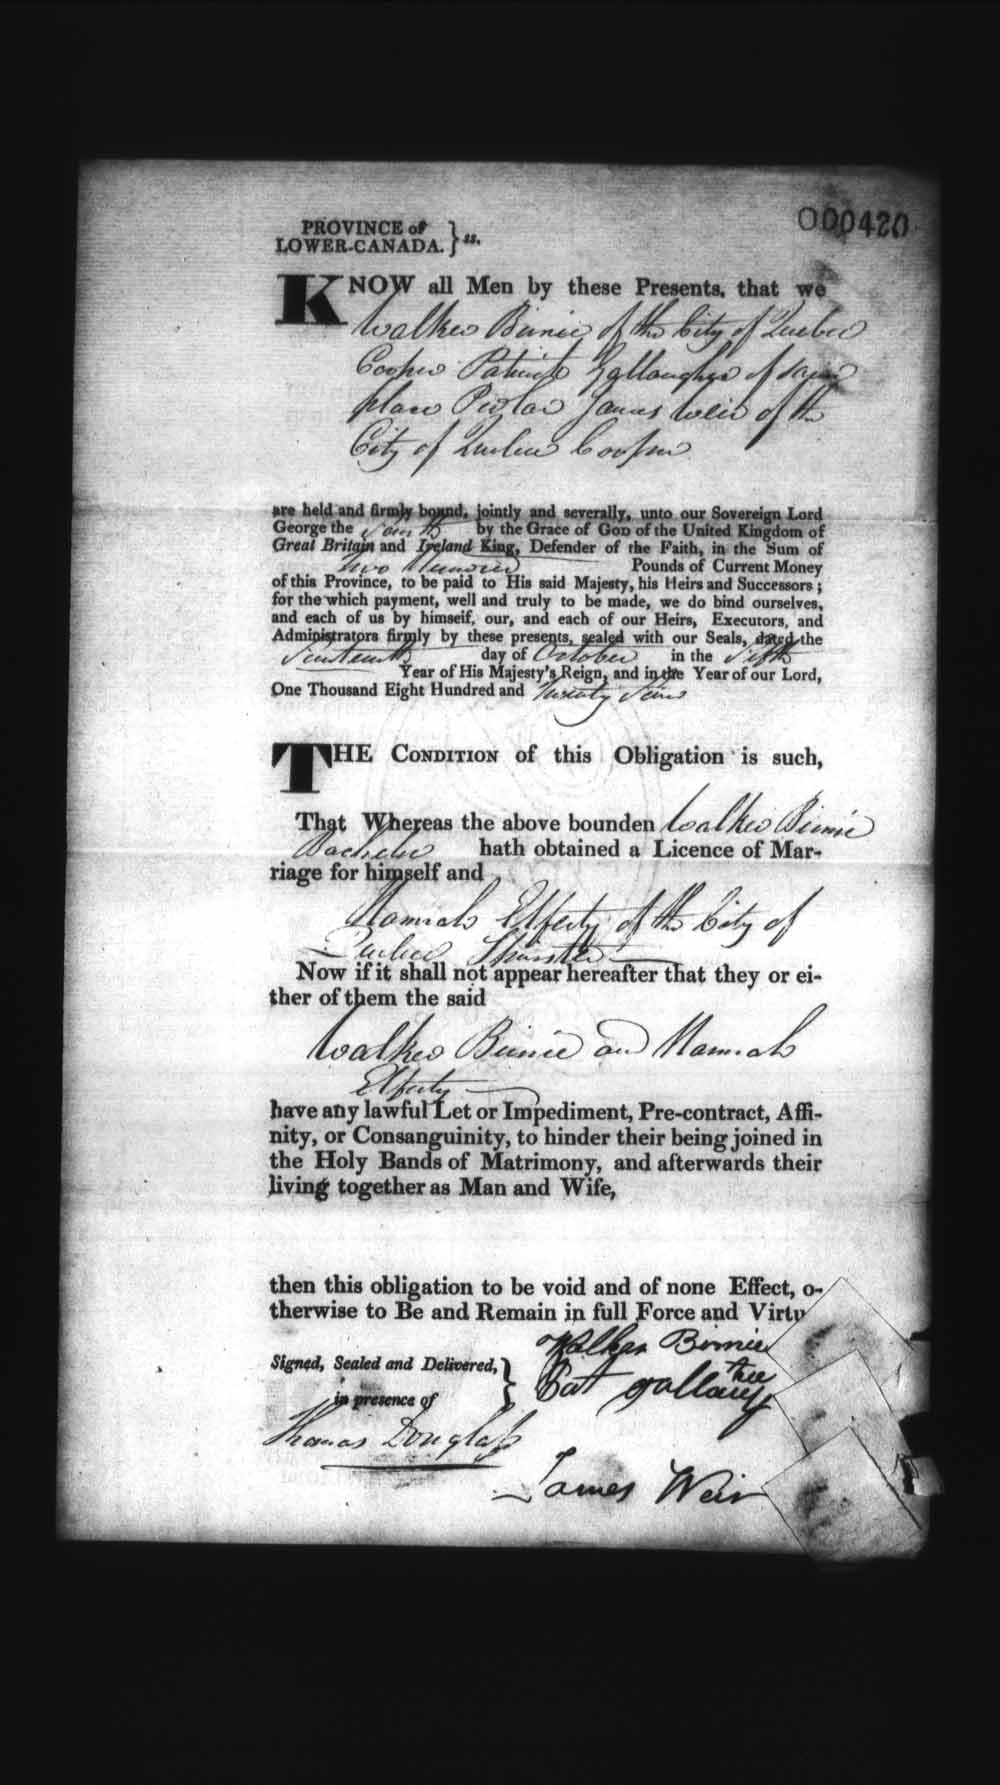 000420
PROVINCE of
LOWER-CANADA. } ss.
KNOW all Men by these Presents, that we
Walker Birnie of the City of Quebec
Cooper Patrick Gallaugher of same
place James Weir of the
City of Quebec Cooper
are held and firmly bound, jointly and severally, unto our Sovereign Lord
George the Fourth by the Grace of GOD of the United Kingdom of
Great Britain and Ireland King, Defender of the Faith, in the Sum of
Two Hundred Pounds of Current Money
of this Province, to be paid to His said Majesty, his Heirs and Successors ;
for the which payment, well and truly to be made, we do bind ourselves,
and each of us by himself, our, and each of our Heirs, Executors, and
Administrators firmly by these presents, sealed with our Seals, dated the
day of October in the Fifth
Year of His Majesty's Reign, and in the Year of our Lord,
One Thousand Eight Hundred and Twenty
THE CONDITION of this Obligation is such,
That Whereas the above bounden Walker Birnie
Bachelor hath obtained a Licence of Mar-
riage for himself and
Hannah Elferty of the City of
Quebec Spinster
Now if it shall not appear hereafter that they or ei-
ther of them the said
Walker Birnie and Hannah
Elferty
have any lawful Let or Impediment, Pre-contract, Affi-
nity, or Consanguinity, to hinder their being joined in
the Holy Bands of Matrimony, and afterwards their
living together as Man and Wife,
then this obligation to be void and of none Effect, o-
therwise to Be and Remain in full Force and Virtu
Signed, Sealed and Delivered, }
in presence of
Walker Birnie
Pat Gallaugher
Thomas Douglass
James Weir